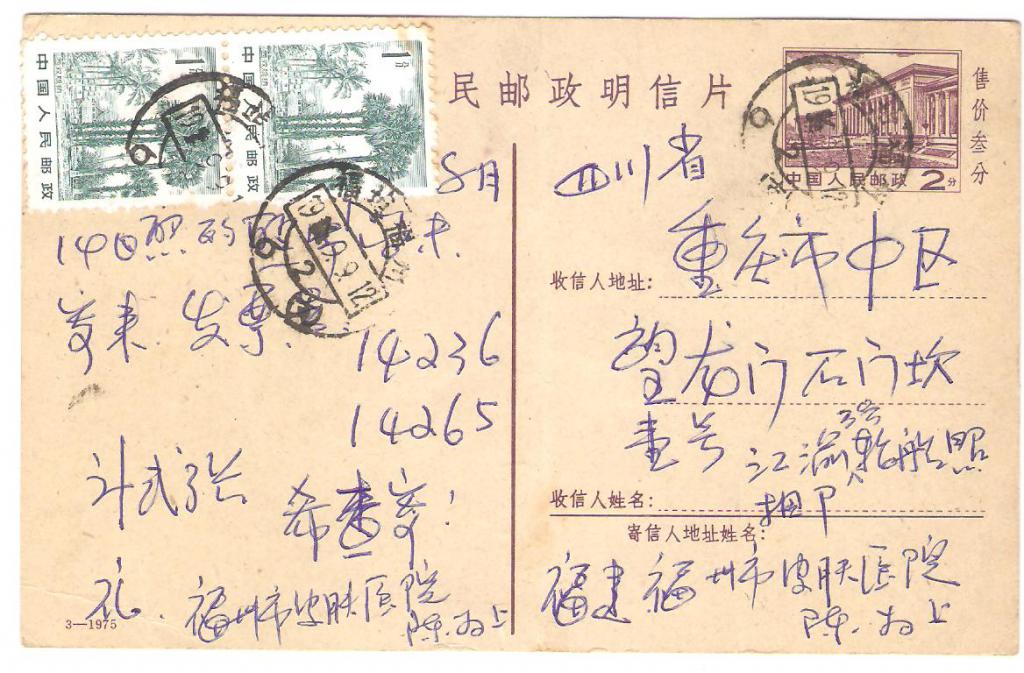 民邮政明信片
售价叁分
中国人民邮政
1分
中国人民邮政
1分
人民邮政
2分
8月
14日照的
未
寄来.发票
14236
14265
计弍张
希查寄!
礼.福州市皮肤医院
陈
上
3—1975
四川省
收信人地址:
重庆市中区
望龙门石门坎
壹号
江渝
3号
轮船照
收信人姓名:
寄信人地址姓名:
福建福州市皮肤医院
陈
上